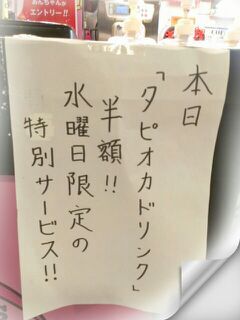 おんちゃんが
エントリー!!
本日
「タピオカドリンク」
半額!!
水曜日限定の
特別サービス!!